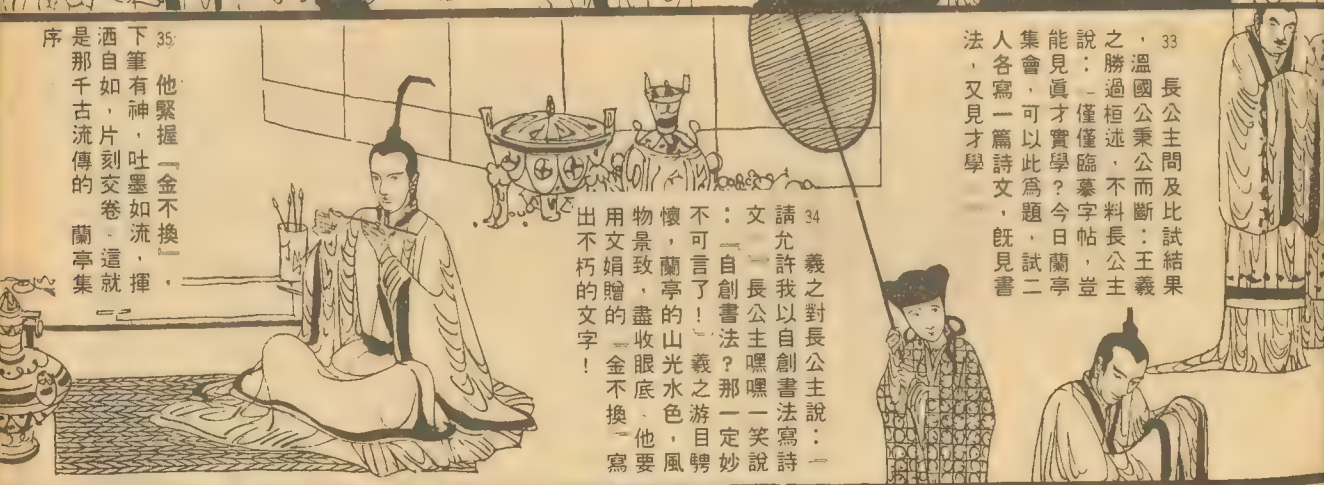 33　長公主問及比試結果
，溫國公秉公而斷：王羲
之勝過桓述、不料長公主
說：「僅僅臨摹字帖，豈
能見眞才實學？今日蘭亭
集會，可以此爲題，試二
人各寫一篇詩文，旣見書
法、又見才學
34　羲之對長公主說：『
請允許我以自創書法寫詩
文　』長公主嘿嘿一笑說
：『自創書法？那一定妙
不可言了！』羲之游目騁
懷，蘭亭的山光水色，風
物景致，盡收眼底、他要
用文娟贈的『金不換』寫
出不朽的文字！
35　他緊握『金不換』，
下筆有神，吐墨如流，揮
洒自如，片刻交卷、這就
是那千古流傳的　蘭亭集
序